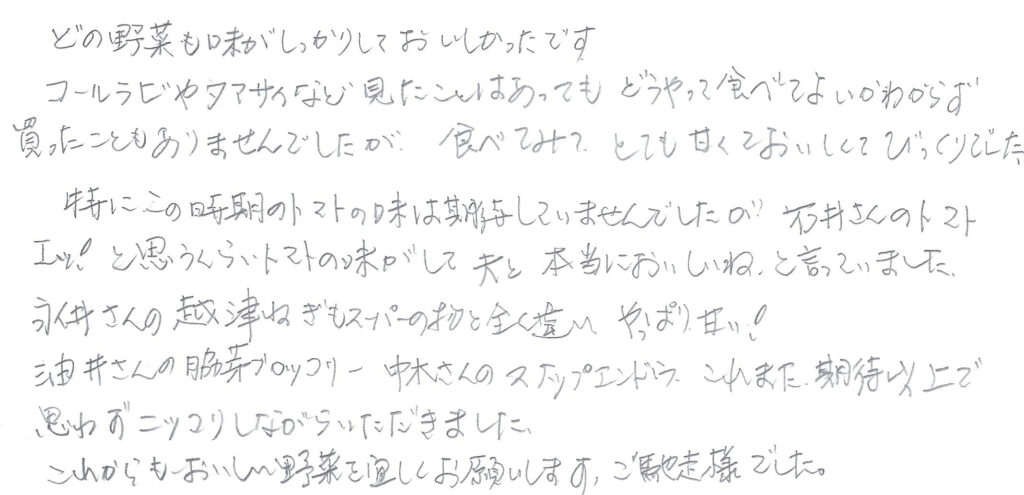 どの野菜も味がしっかりしておいしかったです
コールラビやタアサイなど見たことはあっても どうやって食べてよいかわからず
買ったこともありませんでしたが、食べてみて、とても甘くておいしくてびっくりでした、
特にこの時期のトマトの味は期待していませんでしたが 石井さんのトマト
エッ!と思うくらいトマトの味がして 夫と 本当においしいね、と言っていました、
永井さんの越津ねぎもスーパーの物と全く違い やっぱり甘い!
油井さんの脇芽ブロッコリー 中木さんのスナップエンドウ、これまた、期待以上で
思わずニッコリしながらいただきました、
これからもおいしい野菜を宜しくお願いします、ご馳走様でした。